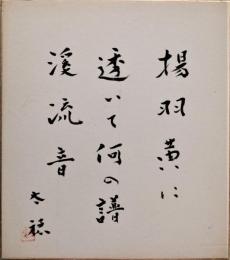 揚羽黄に
透いて何の譜
渓流音
太穂